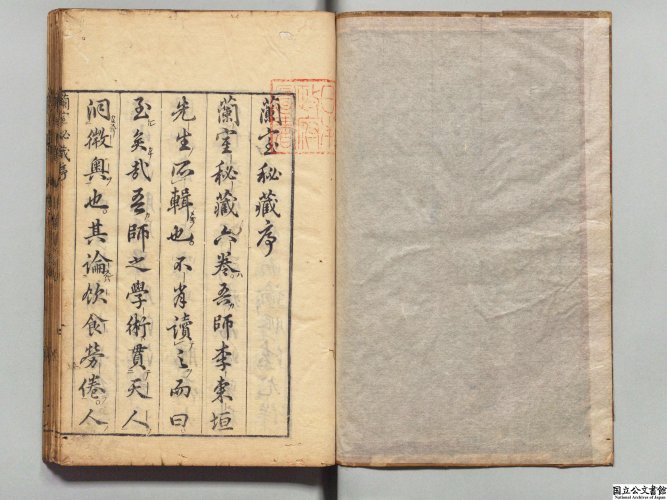 蘭室秘藏序
蘭室秘藏六卷吾師李東垣
先生所輯也不肖讀之而曰
至矣哉吾師之學術貫天人
洞微奧也其論飲食勞倦人
蘭室秘藏序
国立公文書館
National Archives of Japan